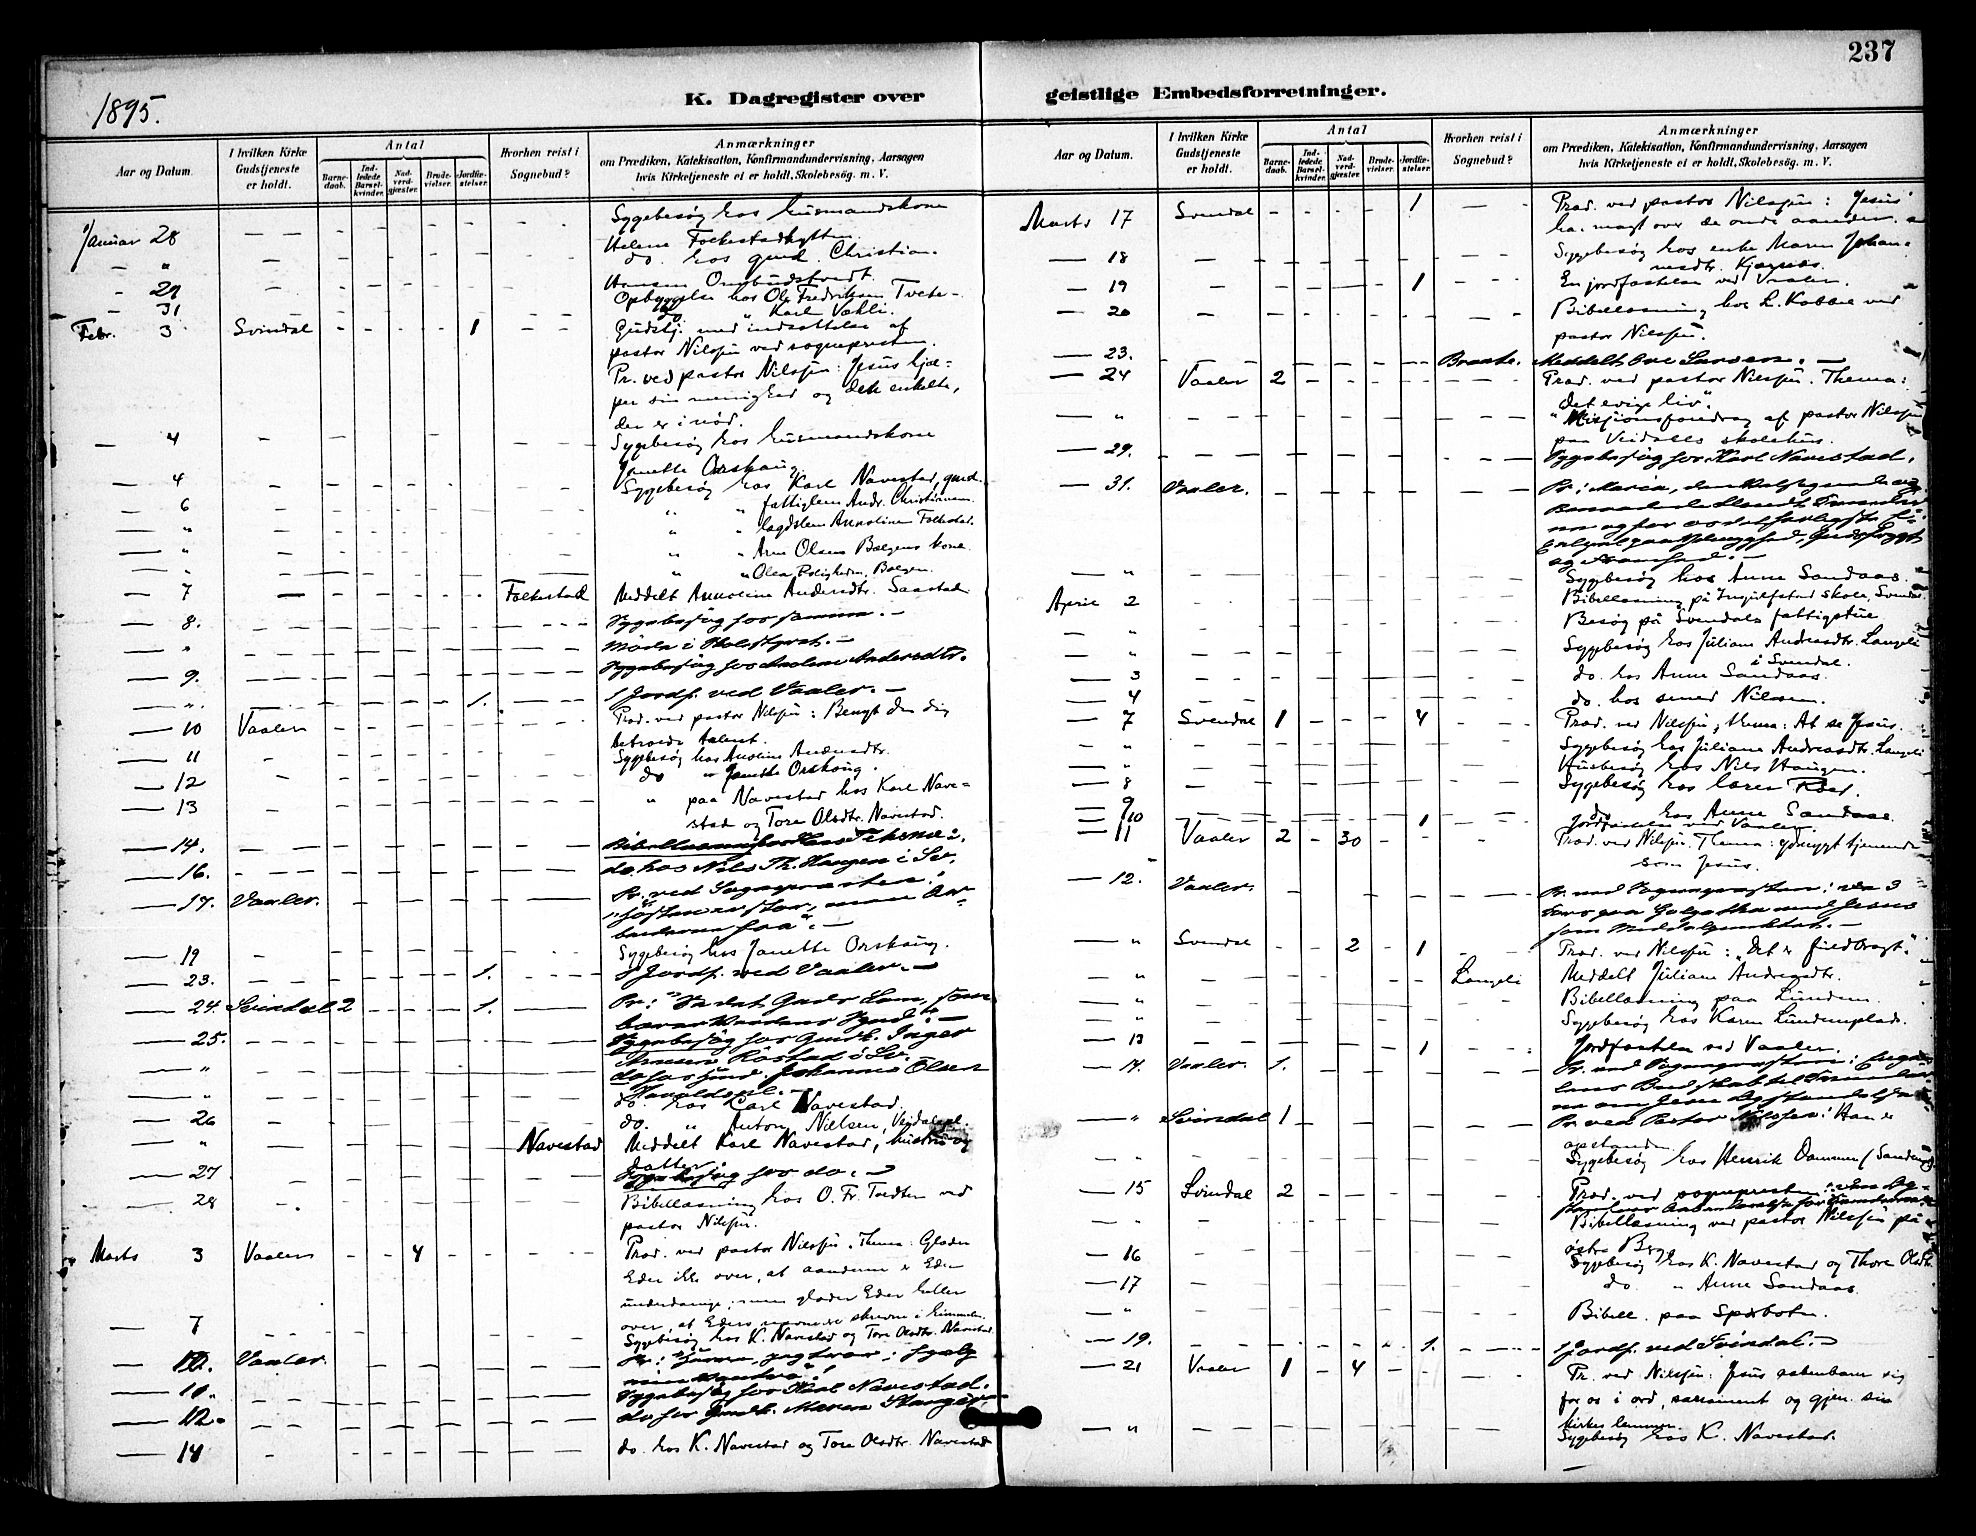 237
1895.
K. Dagregister over
geistlige Embedsforretninger.
Aar og Datum.
I hvilken Kirke Gudstjeneste er holdt.
Antal
Barnedaab.
Indledede Barselkvinder.
Nadverdgjester.
Brudevielser.
Jordfæstelser.
Hvorhen reist i Sognebud?
Anmærkninger
om Prædiken, Katekisation, Konfirmandundervisning, Aarsagen
hvis Kirketjeneste ei er holdt, Skolebesøg. m. V.
Januar 28 Sygebesøg hos husmandskone
Helene Folkestadhytten.
" do. hos gmd. Christian
Hansen Ombudstvedt.
29 Opbyggelse hos Ole Fredriksen Tvete
31 do. " Karl Vakli.
Febr. 3 Svindal 1 Gudstj. med indsættelse af
pastor Nilssen ved sognepresten.
Pr. ved pastor Nilssen: Jesus hjæl-
per sin menighed og den enkelte,
der er i nød.
4 Sygebesøg hos husmandskone
Janette Orskaug
4 Sygebesøg hos Karl Navestad, gmd.
6 " " fattiglem Andr. Christiansen
" " " lægdslem Annoline Folkestad.
" " " Arne Olsens Bølgens kone
" " " Olea Boligheden, Bølgen.
7 Folkestad Meddelt Annoline Andersdtr. Saastad
8. Sygebesøg hos samme. —
" Møde i Skolestyret. —
9. Sygebesøg hos Anoline Andersdtr.
" 1. 1 Jordf. ved Vaaler. —
10 Vaaler Præd. ved pastor Nilssen: Benyt den dig
betroede talent.
11 Sygebesøg hos Anoline Andersdtr.
12 do " Janette Orskaug.
13 " paa Navestad hos Karl Nave-
stad og Tore Olsdtr. Navestad.
14.
16. do. hos Nils Th. Haugen i Sv.
17. Vaaler. Pr. ved Sognepræsten:
19 Sygebesøg hos Janette Orskaug.
23. 1. 1 Jordf. ved Vaaler. —
24. Svindal 2 1. Pr: "Se det Guds Lam, som
bærer Verdens Synd". —
25. Sygebesøg hos Gmdk. Inger
Røstad i Sv.
" do hos Gmd. Johannes Olsen
" do. hos Karl Navestad.
26 do. " Anton Nielsen, Vejdalspl.
" Navestad Meddelt Karl Navestad, hustru og
datter.
27 Sygebesøg hos do. —
28 Bibellæsning hos O. Fr. Tvedten ved
pastor Nilssen.
Marts 3 Vaaler 4 Præd. ved pastor Nilssen. Thema: Glæder
Eder ikke over, at aanderne er Eder
underdanige, men glæder Eder heller
over, at Eders navne er skrevne i himmelen.
7 Sygebesøg hos K. Navestad og Tore Olsdtr. Navestad.
10. Vaaler.
10. Sygebesøg hos Karl Navestad.
12. do hos Gmdk. Maren Haugen
14 do. hos K. Navestad og Tore Olsdtr. Navestad
Aar og Datum.
I hvilken Kirke Gudstjeneste er holdt.
Antal
Barnedaab.
Indledede Barselkvinder.
Nadverdgjester.
Brudevielser.
Jordfæstelser.
Hvorhen reist i Sognebud?
Anmærkninger
om Prædiken, Katekisation, Konfirmandundervisning, Aarsagen
hvis Kirketjeneste ei er holdt, Skolebesøg. m. V.
Marts 17 Svindal 1 Præd. ved pastor Nilssen: Jesus
har magt over de onde aander.
18 Sygebesøg hos enke Maren Johan-
nesdtr. Kjærnæs.
19 1 En jordfæstelse ved Vaaler.
20 Bibellæsning hos L. Kobbel ved
pastor Nilssen.
23. Braate. Meddelt Larsen. —
24 Vaaler 2 Præd. ved pastor Nilssen. Thema:
"Det evige liv".
" Missionsforedrag af pastor Nilssen
paa Veidalls skolehus.
29. Sygebesøg hos Karl Navestad.
31. Vaaler. Pr: Maria,
" Sygebesøg hos Anne Sandaas.
April 2 Bibellæsning på Ingulfstad skole, Svindal
" Besøg på Svendals fattigstue
" Sygebesøg hos Juliane Andreasdtr. Langeli
i Svindal.
3 do. hos Anne Sandaas.
4 do. hos smed Nilssen.
7 Svendal 1 4 Præd. ved Nilssen, thema: At se Jesus.
" Sygebesøg hos Juliane Andreasdtr. Langeli
" Husbesøg hos Nils Haugen.
8 Sygebesøg hos lærer Røed.
9 do hos Anne Sandaas
10 1 Jordfæstelse ved Vaaler.
11 Vaaler 2 30 Præd. ved Nilssen. Thema: ydmygt tjenende
som Jesus.
12. Vaaler. Pr. ved Sognepræsten: de 3
Kors paa Golgatha med Jesus
som Midtelpunktet. —
" Svindal 2 1 Præd. ved Nilssen: "Det er fuldbragt."
" Langeli Meddelt Juliane Andreasdtr.
" Bibellæsning paa Lunden.
" Sygebesøg hos Karen Lundenplads.
13 1 Jordfæstelse ved Vaaler.
14. Vaaler. 1. Pr. ved Sognepræsten:
" Svindal 1 Pr. ved Pastor Nilssen: Han er
opstanden.
" Sygebesøg hos Henrik Dammen
15 Svindal 2 Præd. ved sognepresten:
" Bibellæsning ved pastor Nilssen på
østre Berg.
16 Sygebesøg hos K. Navestad og Thore Olsdtr.
17 do " Anne Sandaas.
" Bibell. paa Sperbotn.
19. 1. 1 Jordf. ved Svindal. —
21 Vaaler 1 4 Pr. ved Nilssen: Jesus aabenbarer sig
for os i ord, sacrament og gjen. sin
kirkes lemmer.
" Sygebesøg hos K. Navestad.